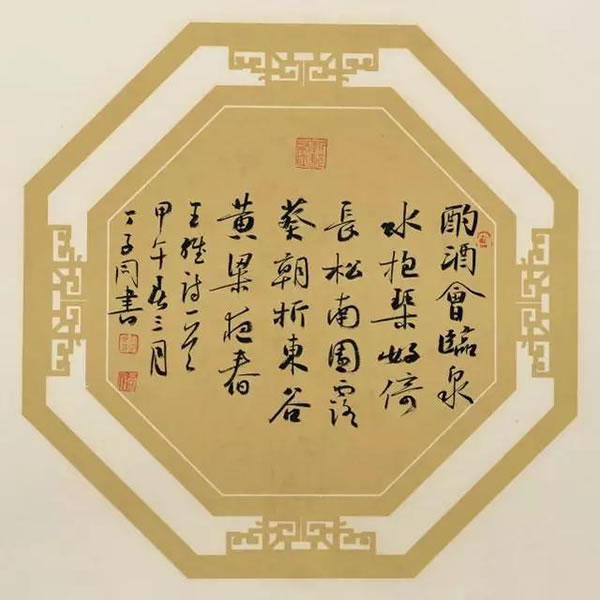 酌酒會臨泉
水抱琴好倚
長松南園露
葵朝折東谷
黄粱夜舂
王維詩一首
甲午春三月
丁子同書